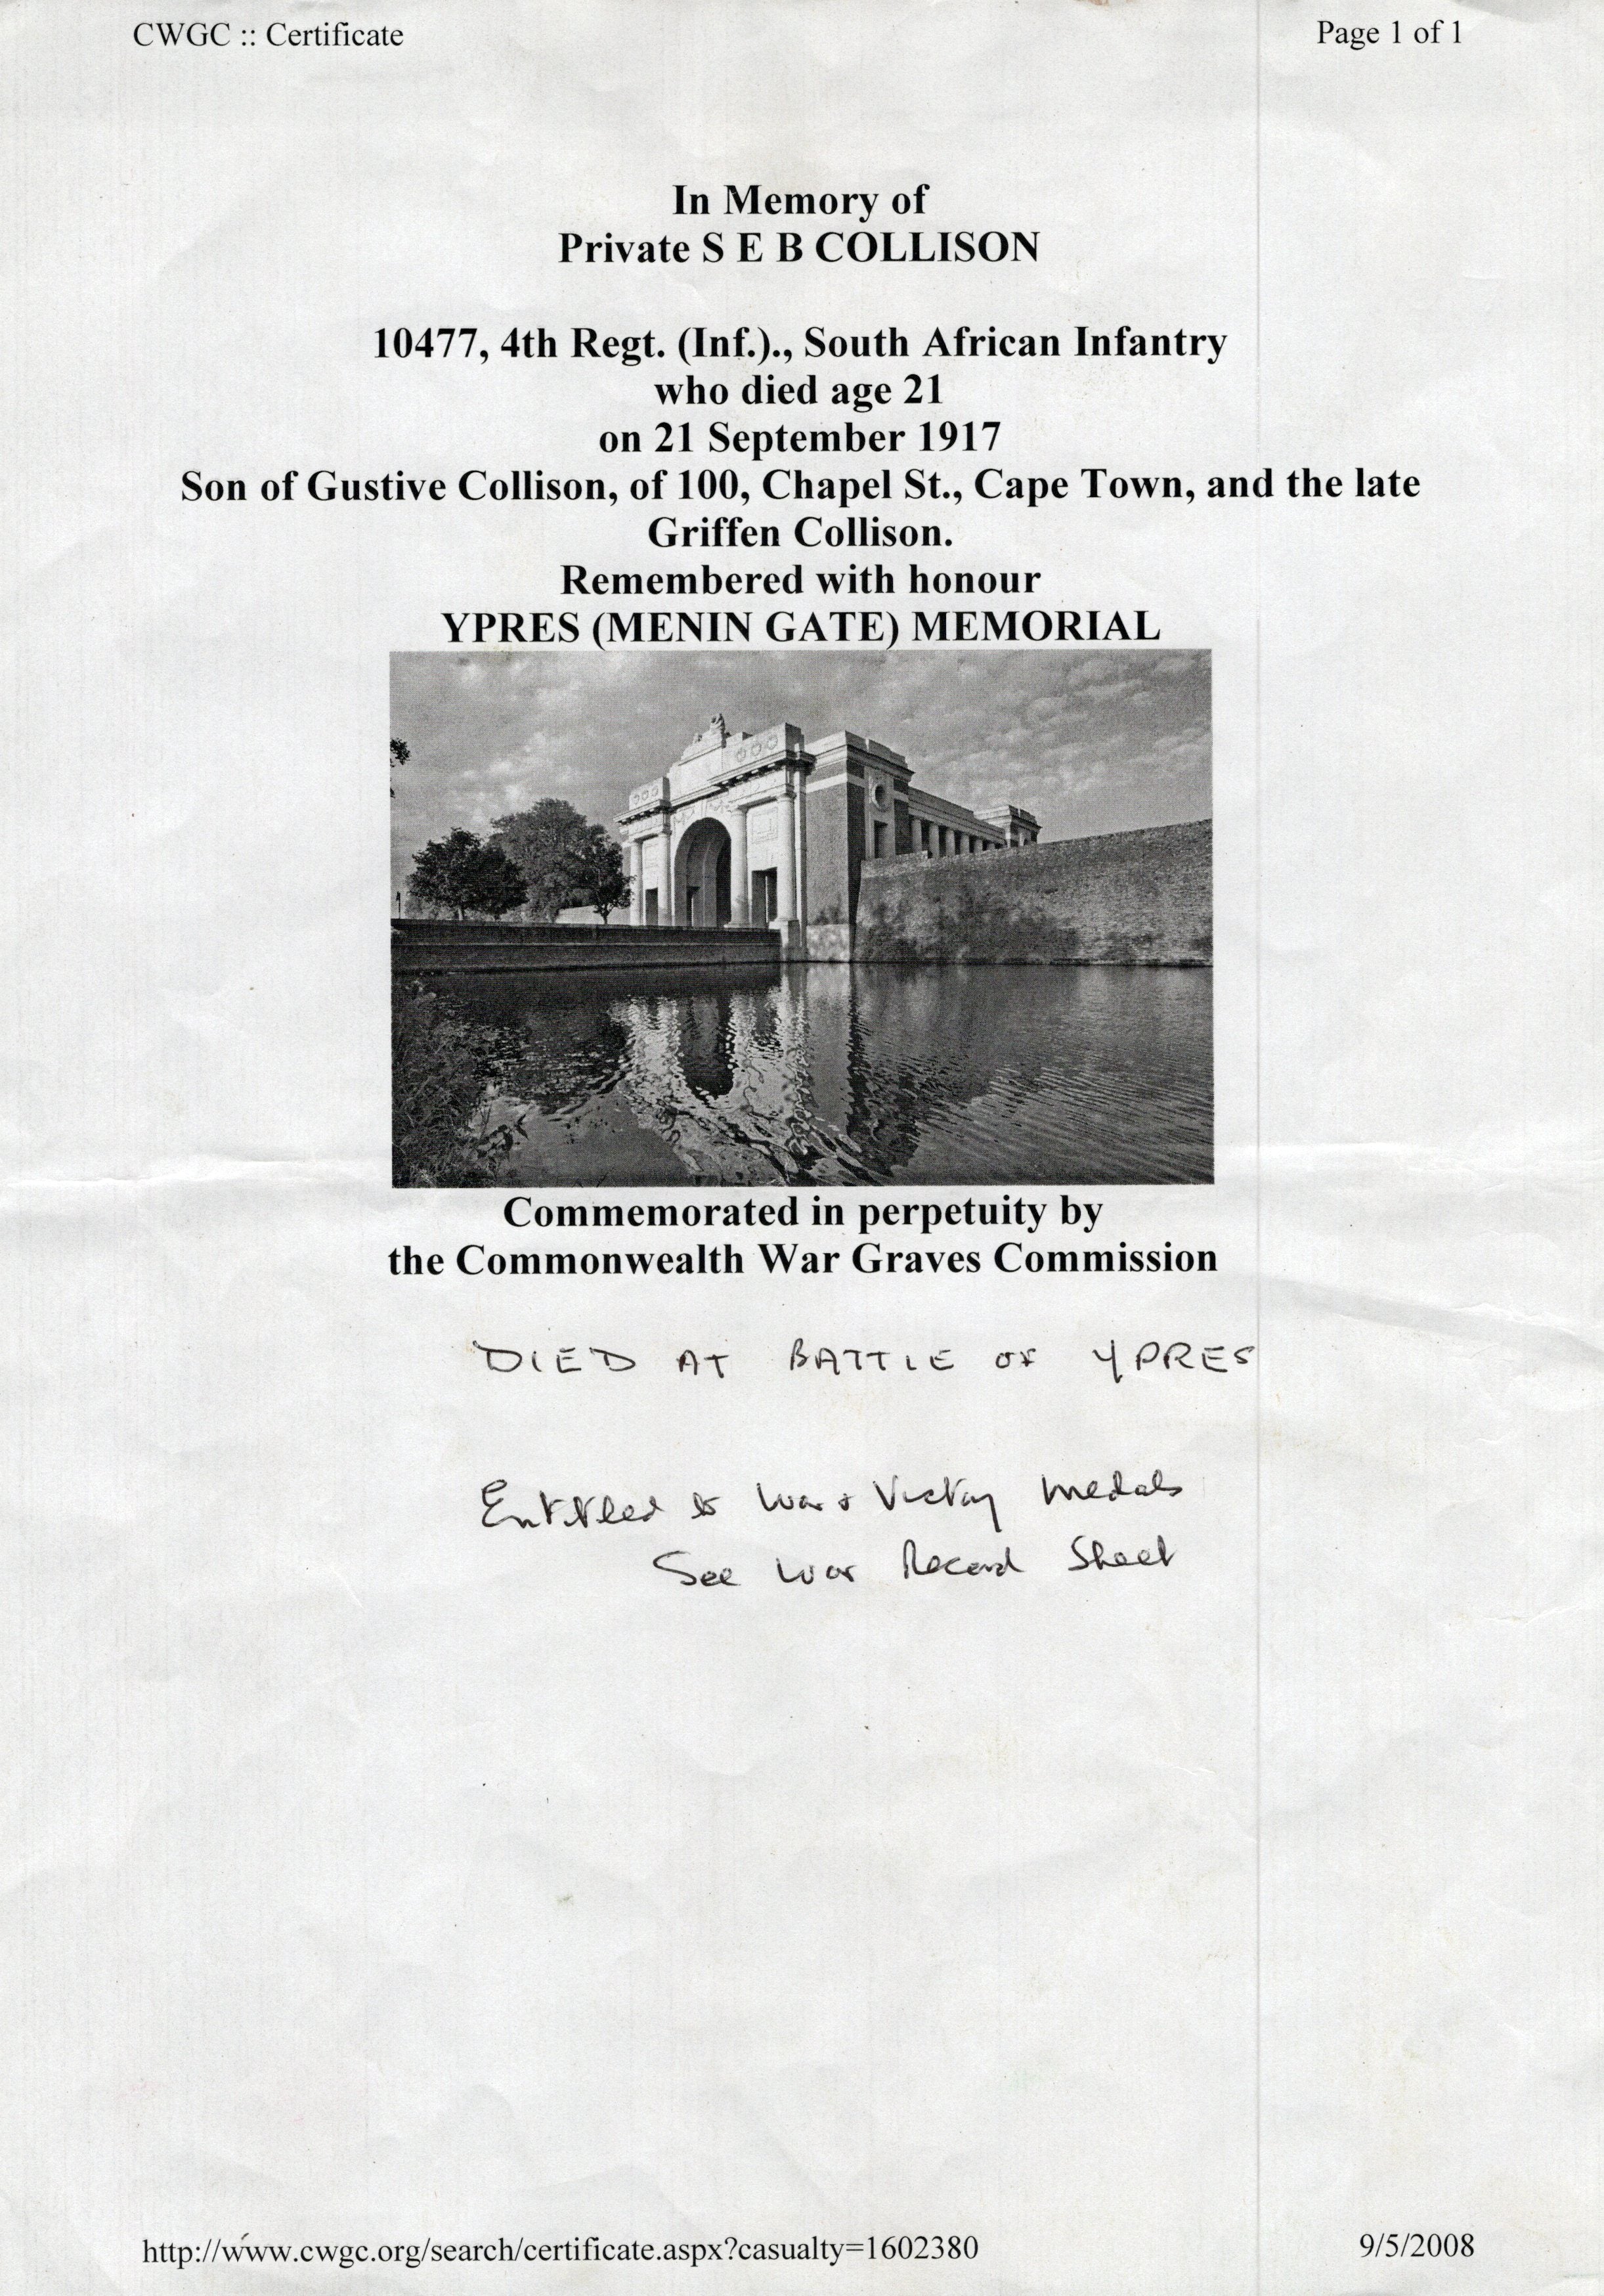 CWGC :: Certificate
Page 1 of 1
In Memory of
Private S E B COLLISON
10477, 4th Regt. (Inf.)., South African Infantry
who died age 21
on 21 September 1917
Son of Gustive Collison, of 100, Chapel St., Cape Town, and the late
Griffen Collison.
Remembered with honour
YPRES (MENIN GATE) MEMORIAL
Commemorated in perpetuity by
the Commonwealth War Graves Commission
DIED AT BATTLE OF YPRES
Entitled to War & Victory Medals
See War Record Sheet
http://www.cwgc.org/search/certificate.aspx?casualty=1602380
9/5/2008